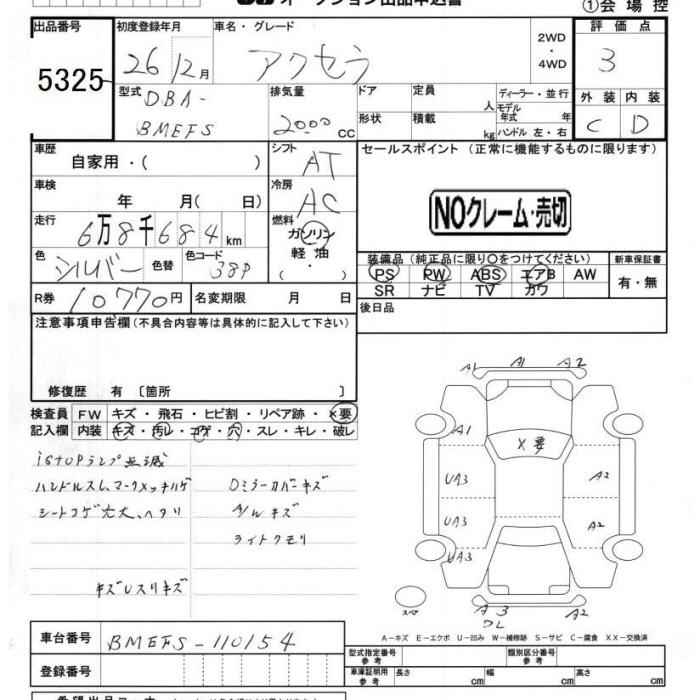 オークション出品申込書
①会場控
出品番号
5325
初度登録年月
26 12月
車名・グレード
アクセラ
2WD
・
4WD
評価点
3
型式
DBA-
BMEFS
排気量
2000 CC
ドア
形状
定員 人
積載 kg
ディーラー・並行
モデル年式 年
ハンドル 左・右
外装 内装
C D
車歴
自家用・( )
シフト
AT
セールスポイント (正常に機能するものに限ります)
車検
年 月( 日)
冷房
AC
NOクレーム・売切
走行
6万8千684km
燃料
ガソリン
軽油
・( )
色
シルバー
色替
色コード
38P
装備品 (純正品に限り○をつけてください)
PS PW ABS エアB AW
SR ナビ TV カワ
新車保証書
有・無
R券
10770円
名変期限 月 日
後日品
注意事項申告欄 (不具合内容等は具体的に記入して下さい)
修復歴 有 〔箇所 〕
検査員 FW キズ・飛石・ヒビ割・リペア跡・×要
記入欄 内装 キズ・汚レ・コゲ・穴・スレ・キレ・破レ
iSTOPランプ点滅
ハンドルスレ、マークメッキハゲ
シートコゲ穴大、ヘタリ
DミラーカバーキズA/Wキズ
ライトクモリ
キズUスリキズ
A1 A1 A2
A1
×要
UA3
A2
UA3
A2
UA3
スペア
A A3 A2
車台番号
BMEFS-110154
登録番号
A-キズ E-エクボ U-凹み W-補修跡 S-サビ C-腐食 XX-交換済
型式指定番号
参考
類別区分番号
参考
車庫証明用
参考
長さ cm
幅 cm
高さ cm